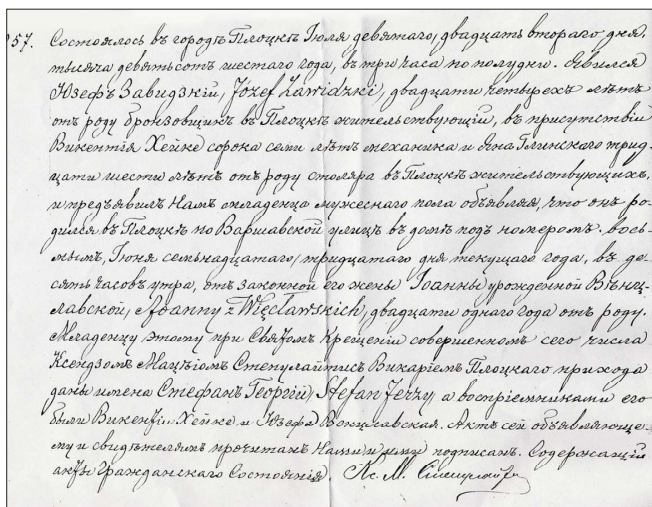 257. Состоялось въ городѣ Плоцкѣ Іюля девятаго, двадцать втораго дня,
тысяча девятьсотъ шестаго года, въ три часа по полудни. Явился
Юзефъ Завидзкій, /Józef Zawidzki/, двадцати четырехъ лѣтъ
отъ роду бронзовщикъ въ Плоцкѣ жительствующій, въ присутствіи
Викентія Хейке сорока семи лѣтъ механика и Яна Глинскаго трид-
цати шести лѣтъ отъ роду столяра въ Плоцкѣ жительствующихъ,
и предъявилъ Намъ младенца мужескаго пола объявляя, что онъ ро-
дился въ Плоцкѣ по Варшавской улицѣ въ домѣ подъ номеромъ вось-
мымъ, Іюня семьнадцатаго, тридцатаго дня текущаго года, въ де-
сять часовъ утра, отъ законной его жены Іоанны урожденной Вѣнц-
лавской, /Joanny z Więcławskich/, двадцати одного года отъ роду.
Младенцу этому при Святомъ Крещеніи совершенномъ сего числа
Ксендзомъ Мацѣемъ Степулайтисъ Викаріемъ Плоцкаго прихода
даны имена Стефанъ Георгій, /Stefan Jerzy/ а воспріемниками его
были Викентій Хейке и Юзефа Венцлавская. Актъ сей объявляюще-
му и свидѣтелямъ прочитанъ Нами и ими подписанъ. Содержащій
акты Гражданскаго Состоянія. Кс. М.